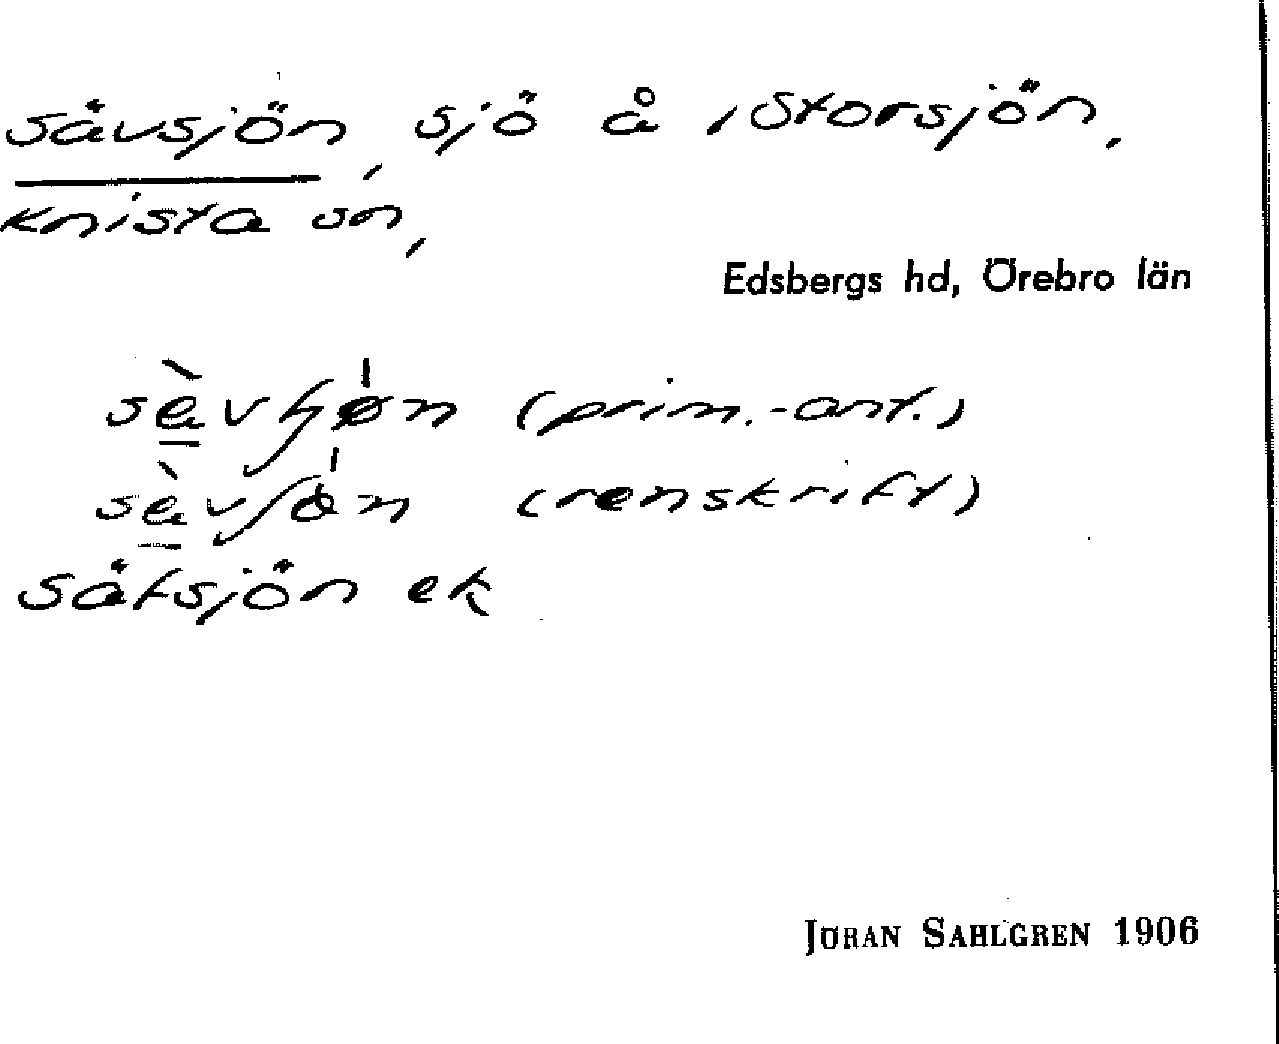 Sävsjön, sjö å Storsjön,
Knista sn,
Edsbergs hd, Örebro län
(prim.-ant.)
(renskrift)
Säfsjön ek
JÖRAN SAHLGREN 1906